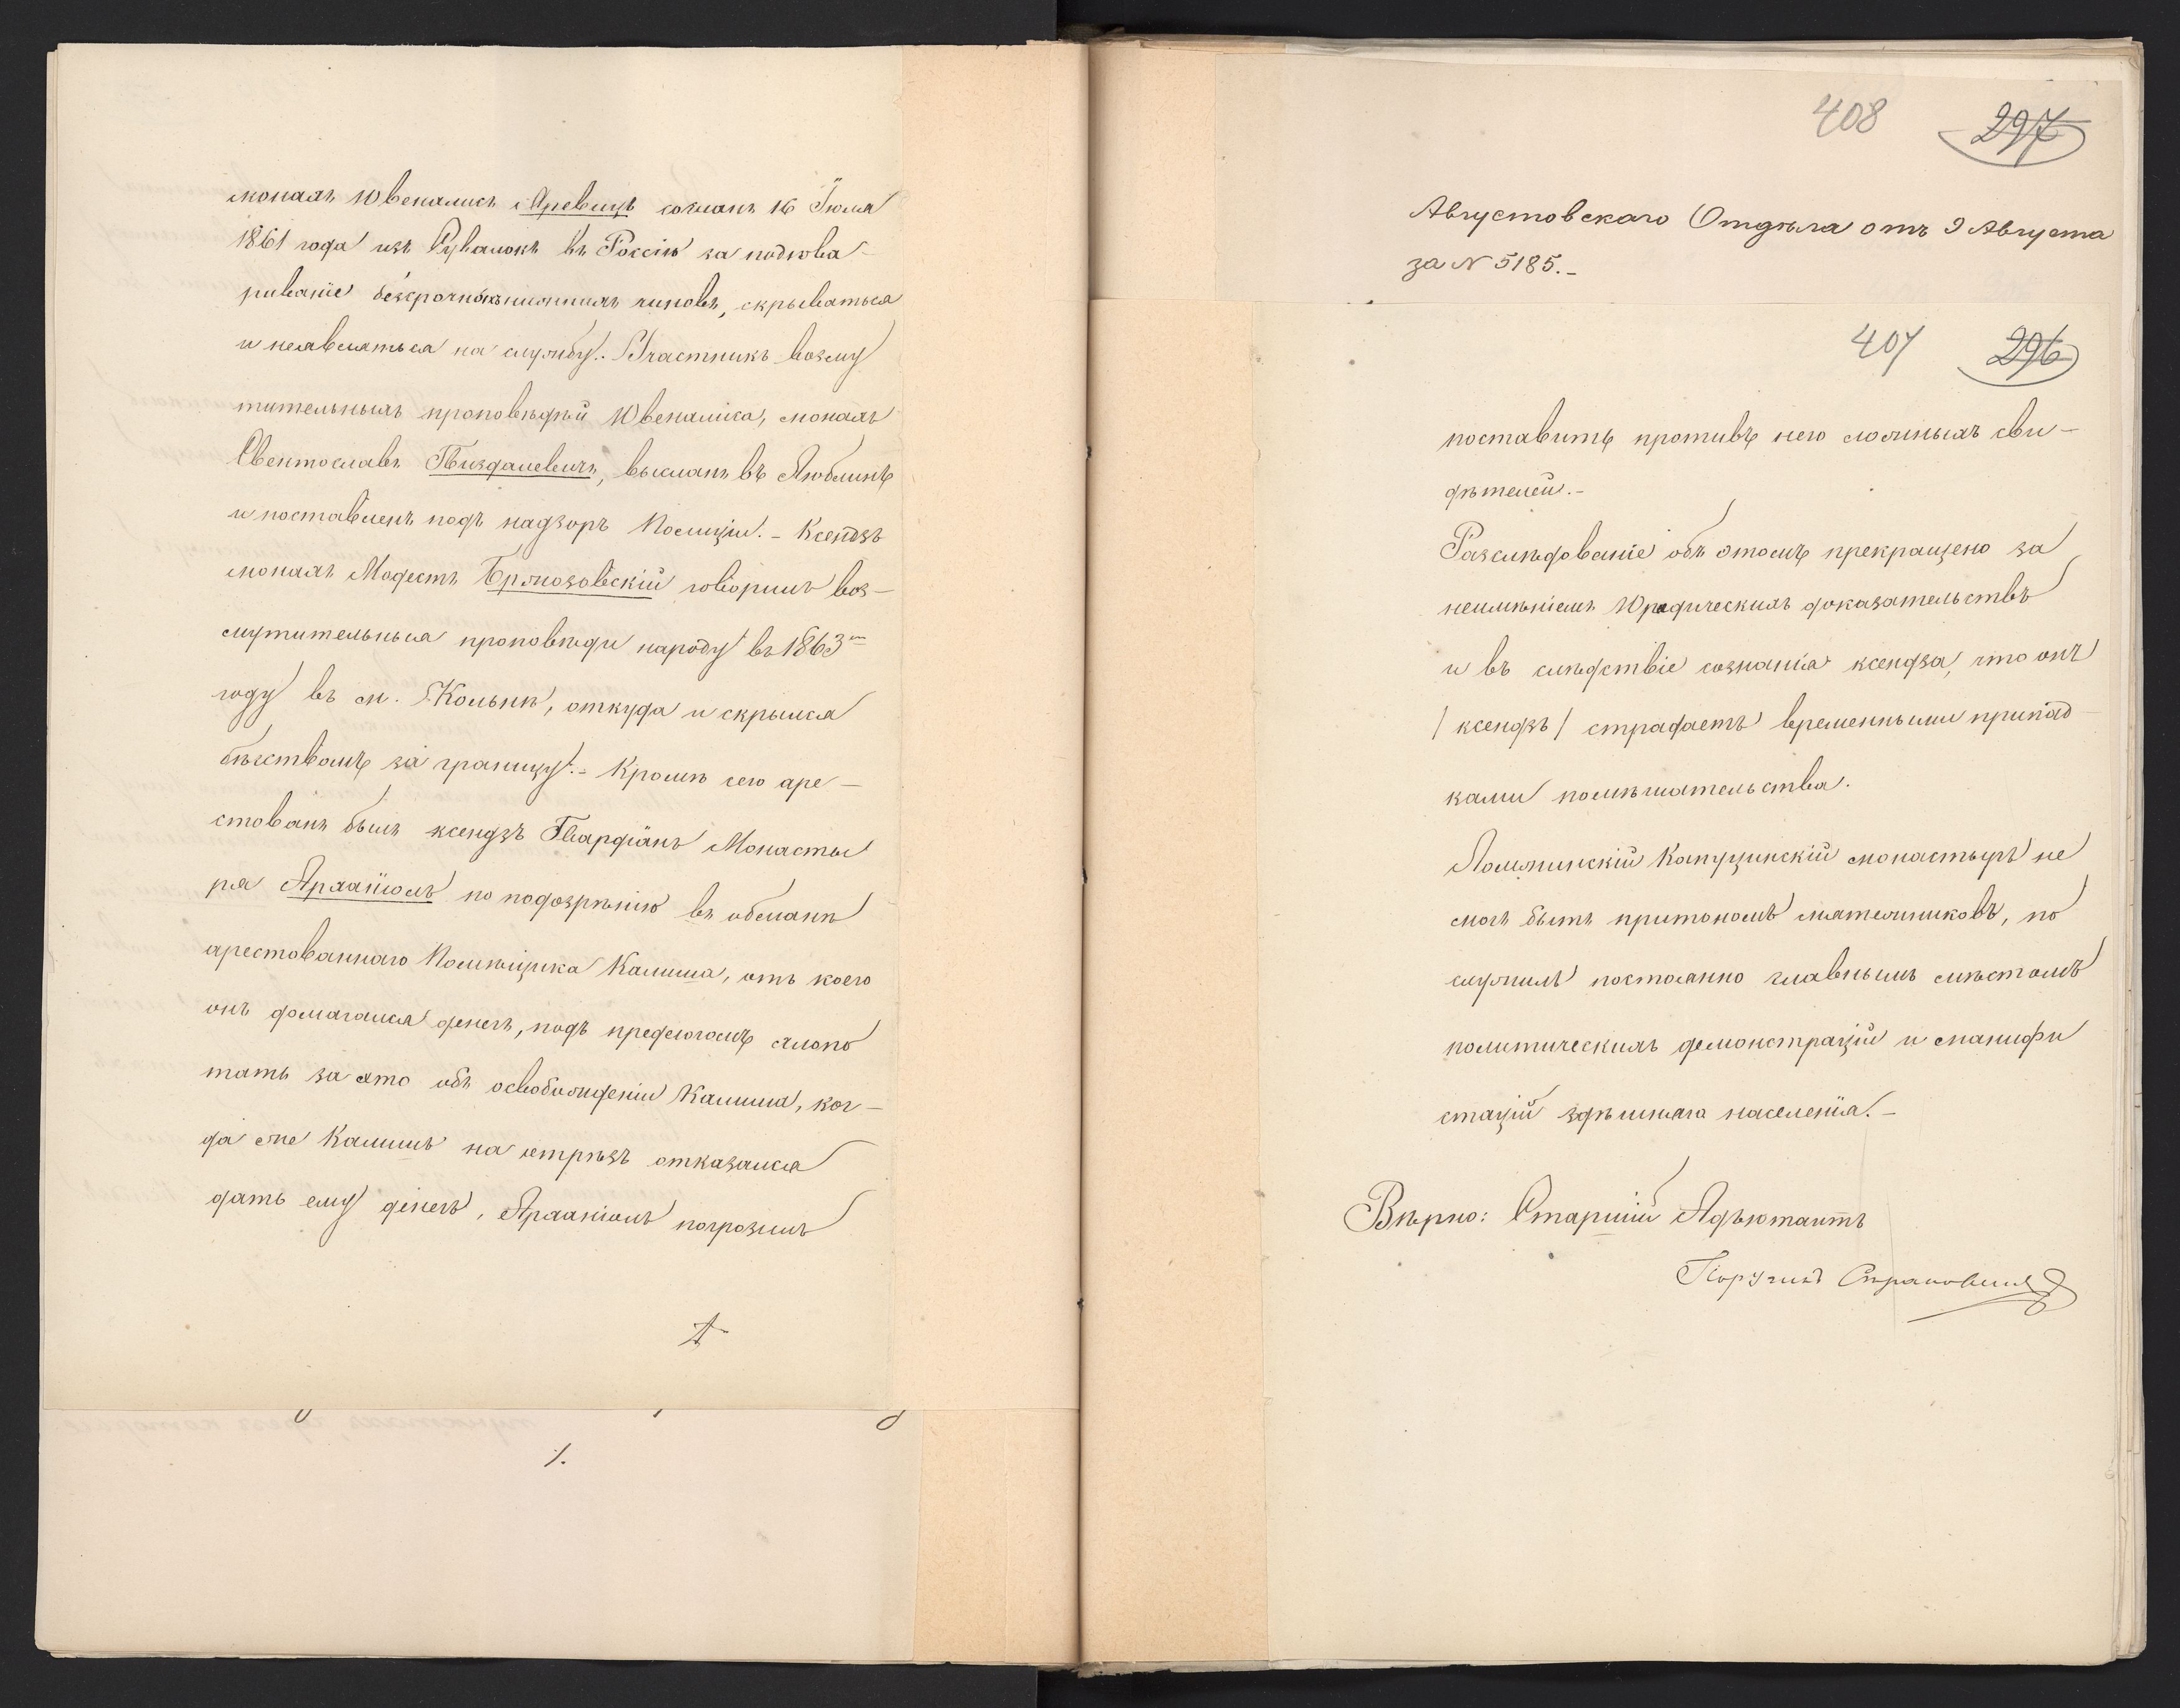 монахъ Ювеналисъ Яревицъ сосланъ 16 Іюля
1861 года изъ Сувалокъ въ Россію за подгова-
риваніе безсрочныхъ нижнихъ чиновъ, скрываться
и неявляться на службу. Участникъ возму
тительныхъ проповѣдѣй Ювеналиса, монахъ
Свентославъ Гвиздалевичъ, высланъ въ Люблинъ
и поставленъ подъ надзоръ Полиціи. - Ксендзъ
монахъ Модестъ Бржозовскій говорилъ воз-
мутительныя проповѣди народу въ 1863 мъ
году въ м. Кольнѣ, откуда и скрылся
бѣгствомъ за границу. - Кромѣ сего аре-
стованъ былъ ксендзъ Гвардіанъ Монасты
ря по подозрѣнію въ обманѣ
арестованнаго Помѣщика Калиша, отъ коего
онъ домагался денегъ, подъ предлогомъ хлопо
тать за это объ освобожденіи Калиша, ког-
да же Калишъ на отрѣзъ отказался
дать ему денегъ, погрозилъ
1.
408 297
Августовскаго Отдѣла отъ 9 Августа
за N 5185.-
407 296
поставить противъ него ложныхъ сви-
дѣтелей.-
Разслѣдованіе объ этомъ прекращено за
неимѣніемъ Юредическихъ доказательствъ
и въ слѣдствіе сознанія ксендза, что онъ
/ксендзъ/ страдаетъ временными припад-
ками помѣшательства.
Ломжинскій Капуцинскій монастырь не
могъ быть притономъ мятежниковъ, но
служилъ постоянно главнымъ мѣстомъ
политическихъ демонстрацій и манифи
стацій здѣшняго населенія. -
Вѣрно: Старшій Адъютантъ
Поручикъ